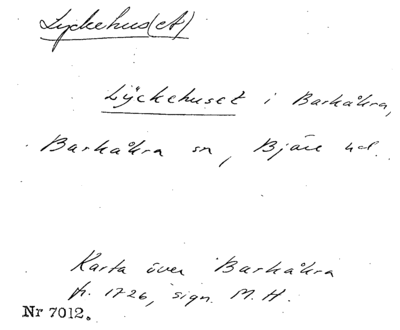 Lyckehus(et)
Lÿckehuset i Barkåkra,
Barkåkra sn, Bjäre hd.
Karta över Barkåkra
fr. 1726, sign. M. H.
Nr 7012.